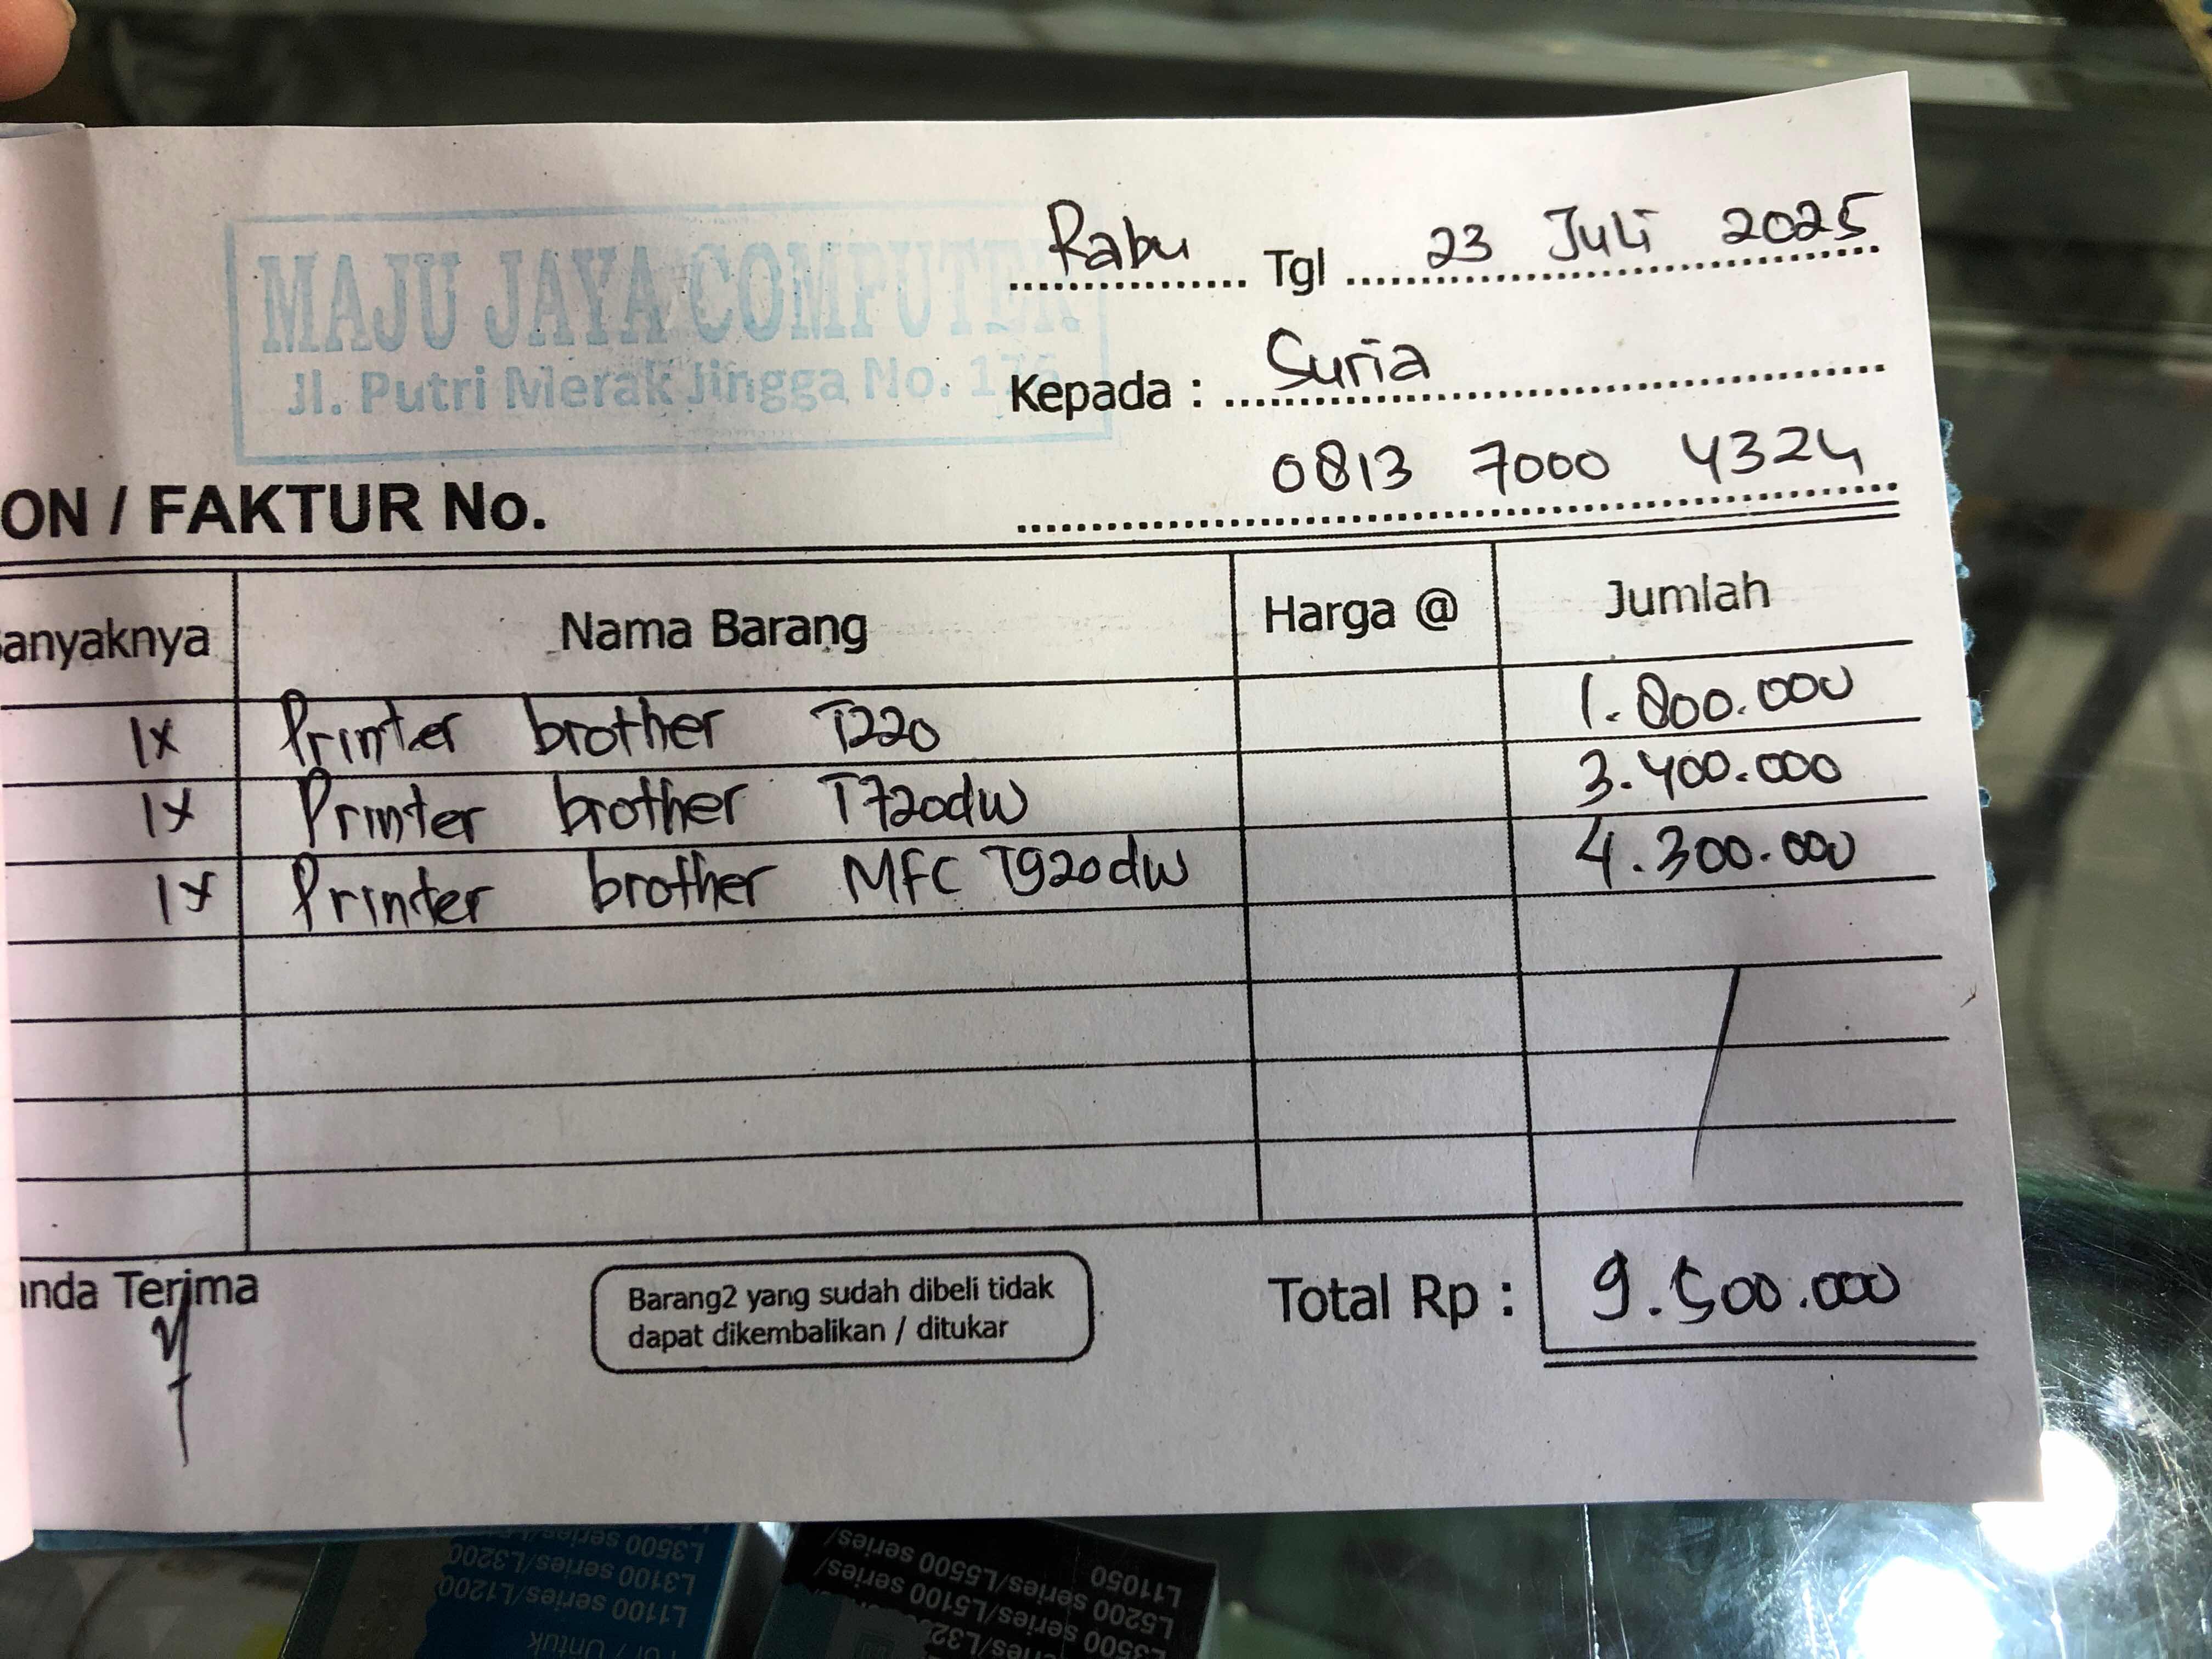 MAJU JAYA COMPUTER
Jl. Putri Merak Jingga No. 176
Rabu Tgl 23 Juli 2025
Kepada : Suria
0813 7000 4324
ON / FAKTUR No.
anyaknya Nama Barang Harga @ Jumlah
1x Printer brother T220 1.800.000
1x Printer brother T720dw 3.400.000
1x Printer brother MFC T920dw 4.300.000
anda Terima
Barang2 yang sudah dibeli tidak
dapat dikembalikan / ditukar
Total Rp : 9.500.000
L1100 series/L1200
L3100 series/L3200
L3500 series/
L11050
L5200 series/L5500 series/
L3500 series/L5100 series/